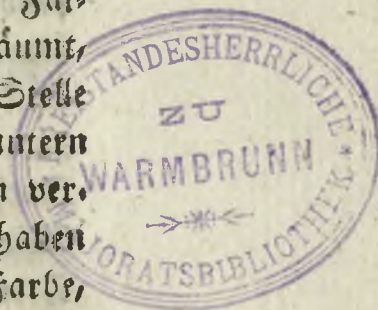 äumt,
Stelle
n ver-
haben
Farbe,
STANDESHERRLICHE
ZU
WARMBRUNN
JORATSBIBLIOTHEK